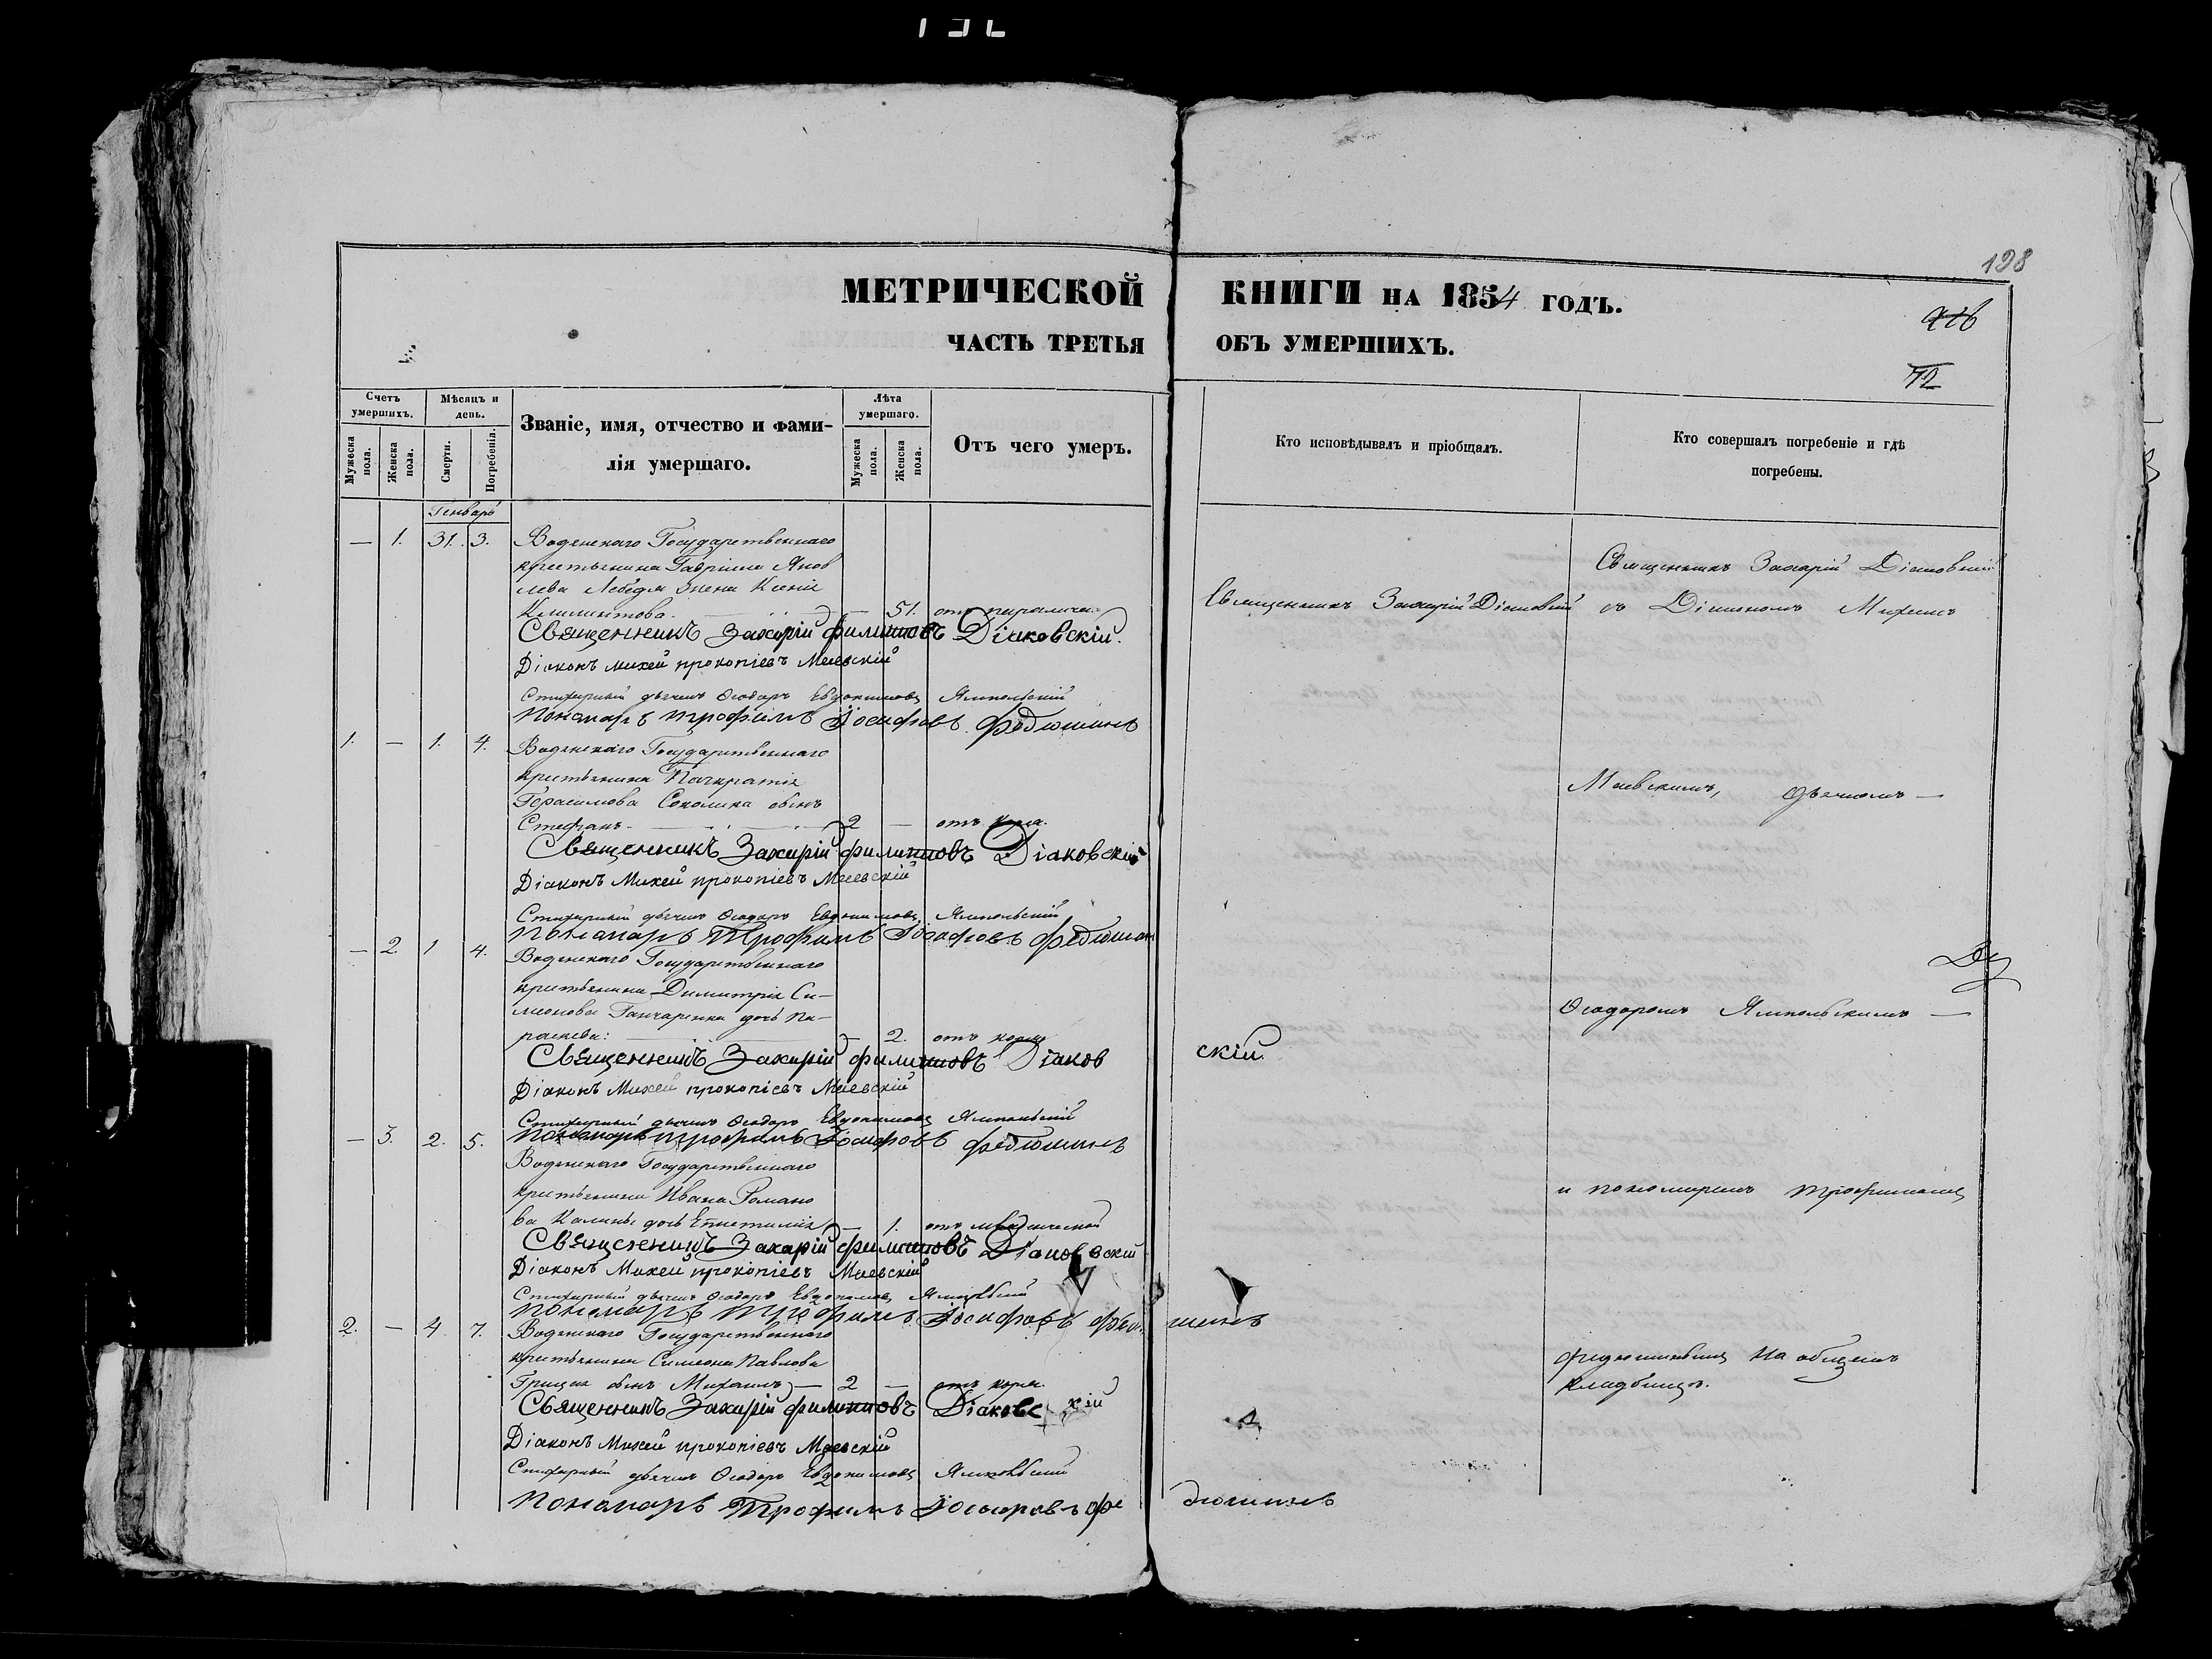 198
МЕТРИЧЕСКОЙ КНИГИ НА 1854 ГОДЪ.
ЧАСТЬ ТРЕТЬЯ ОБЪ УМЕРШИХЪ.
72
Счетъ умершихъ.
Мужеска пола.
Женска пола.
Мѣсяцъ и день.
Смерти.
Погребенія.
Званіе, имя, отчество и фами-
лія умершаго.
Лѣта умершаго.
Мужеска пола.
Женска пола.
Отъ чего умеръ.
Кто исповѣдывалъ и пріобщалъ.
Кто совершалъ погребеніе и гдѣ
погребены.
Генварь
— 1. 31. 3. Водянскаго Государственнаго
крестьянина Гавріила Яков
лева Лебедя жена Ксенія
Климентова — 51. отъ паралича.
Священникъ Захарій Діаковскій
Священникъ Захарій Діаковскій съ Діакономъ Михеемъ
Священникъ Захарій Филиповъ Діаковскій.
Діаконъ Михей Прокопіевъ Маевскій
Стихарный дьячокъ Ѳеодоръ Евдокимовъ Ямпольскій
Пономарь Трофимъ Іосифовъ Федюшинъ
1. — 1. 4. Водянскаго Государственнаго
крестьянина Панкратія
Герасимова Соколика сынъ
Стефанъ 2 — отъ кора.
Маевскимъ, дьячкомъ —
Священникъ Захарій Филиповъ Діаковскій
Діаконъ Михей Прокопіевъ Маевскій
Стихарный дьячокъ Ѳеодоръ Евдокимовъ Ямпольскій
Пономарь Трофимъ Іосифовъ Федюшинъ
— 2 1 4. Водянскаго Государственнаго
крестьянина Димитрія Си-
меонова Ганчаренка дочь Па-
раскева: 2. отъ кора
Ѳеодоромъ Ямпольскимъ —
Священникъ Захарій Филиповъ Діаков скій
Діаконъ Михей Прокопіевъ Маевскій
Стихарный дьячокъ Ѳеодоръ Евдокимовъ Ямпольскій
Пономарь Трофимъ Іосифовъ Федюшинъ
— 3. 2. 5. Водянскаго Государственнаго
крестьянина Ивана Романо
ва Калины дочь — 1. отъ младенческой
и пономаремъ Трофимомъ
Священникъ Захарій Филиповъ Діаковскій
Діаконъ Михей Прокопіевъ Маевскій
Стихарный дьячокъ Ѳеодоръ Евдокимовъ Ямпольскій
Пономарь Трофимъ Іосифовъ Федю шинъ
2. — 4 7. Водянскаго Государственнаго
крестьянина Симеона Павлова
Грицая сынъ Михаилъ — 2 — отъ кора.
Федюшинымъ на общемъ
кладбищѣ.
Священникъ Захарій Филиповъ Діаковскій
Діаконъ Михей Прокопіевъ Маевскій
Стихарный дьячокъ Ѳеодоръ Евдокимовъ Ямпольскій
Пономарь Трофимъ Іосифовъ Фе дюшинъ